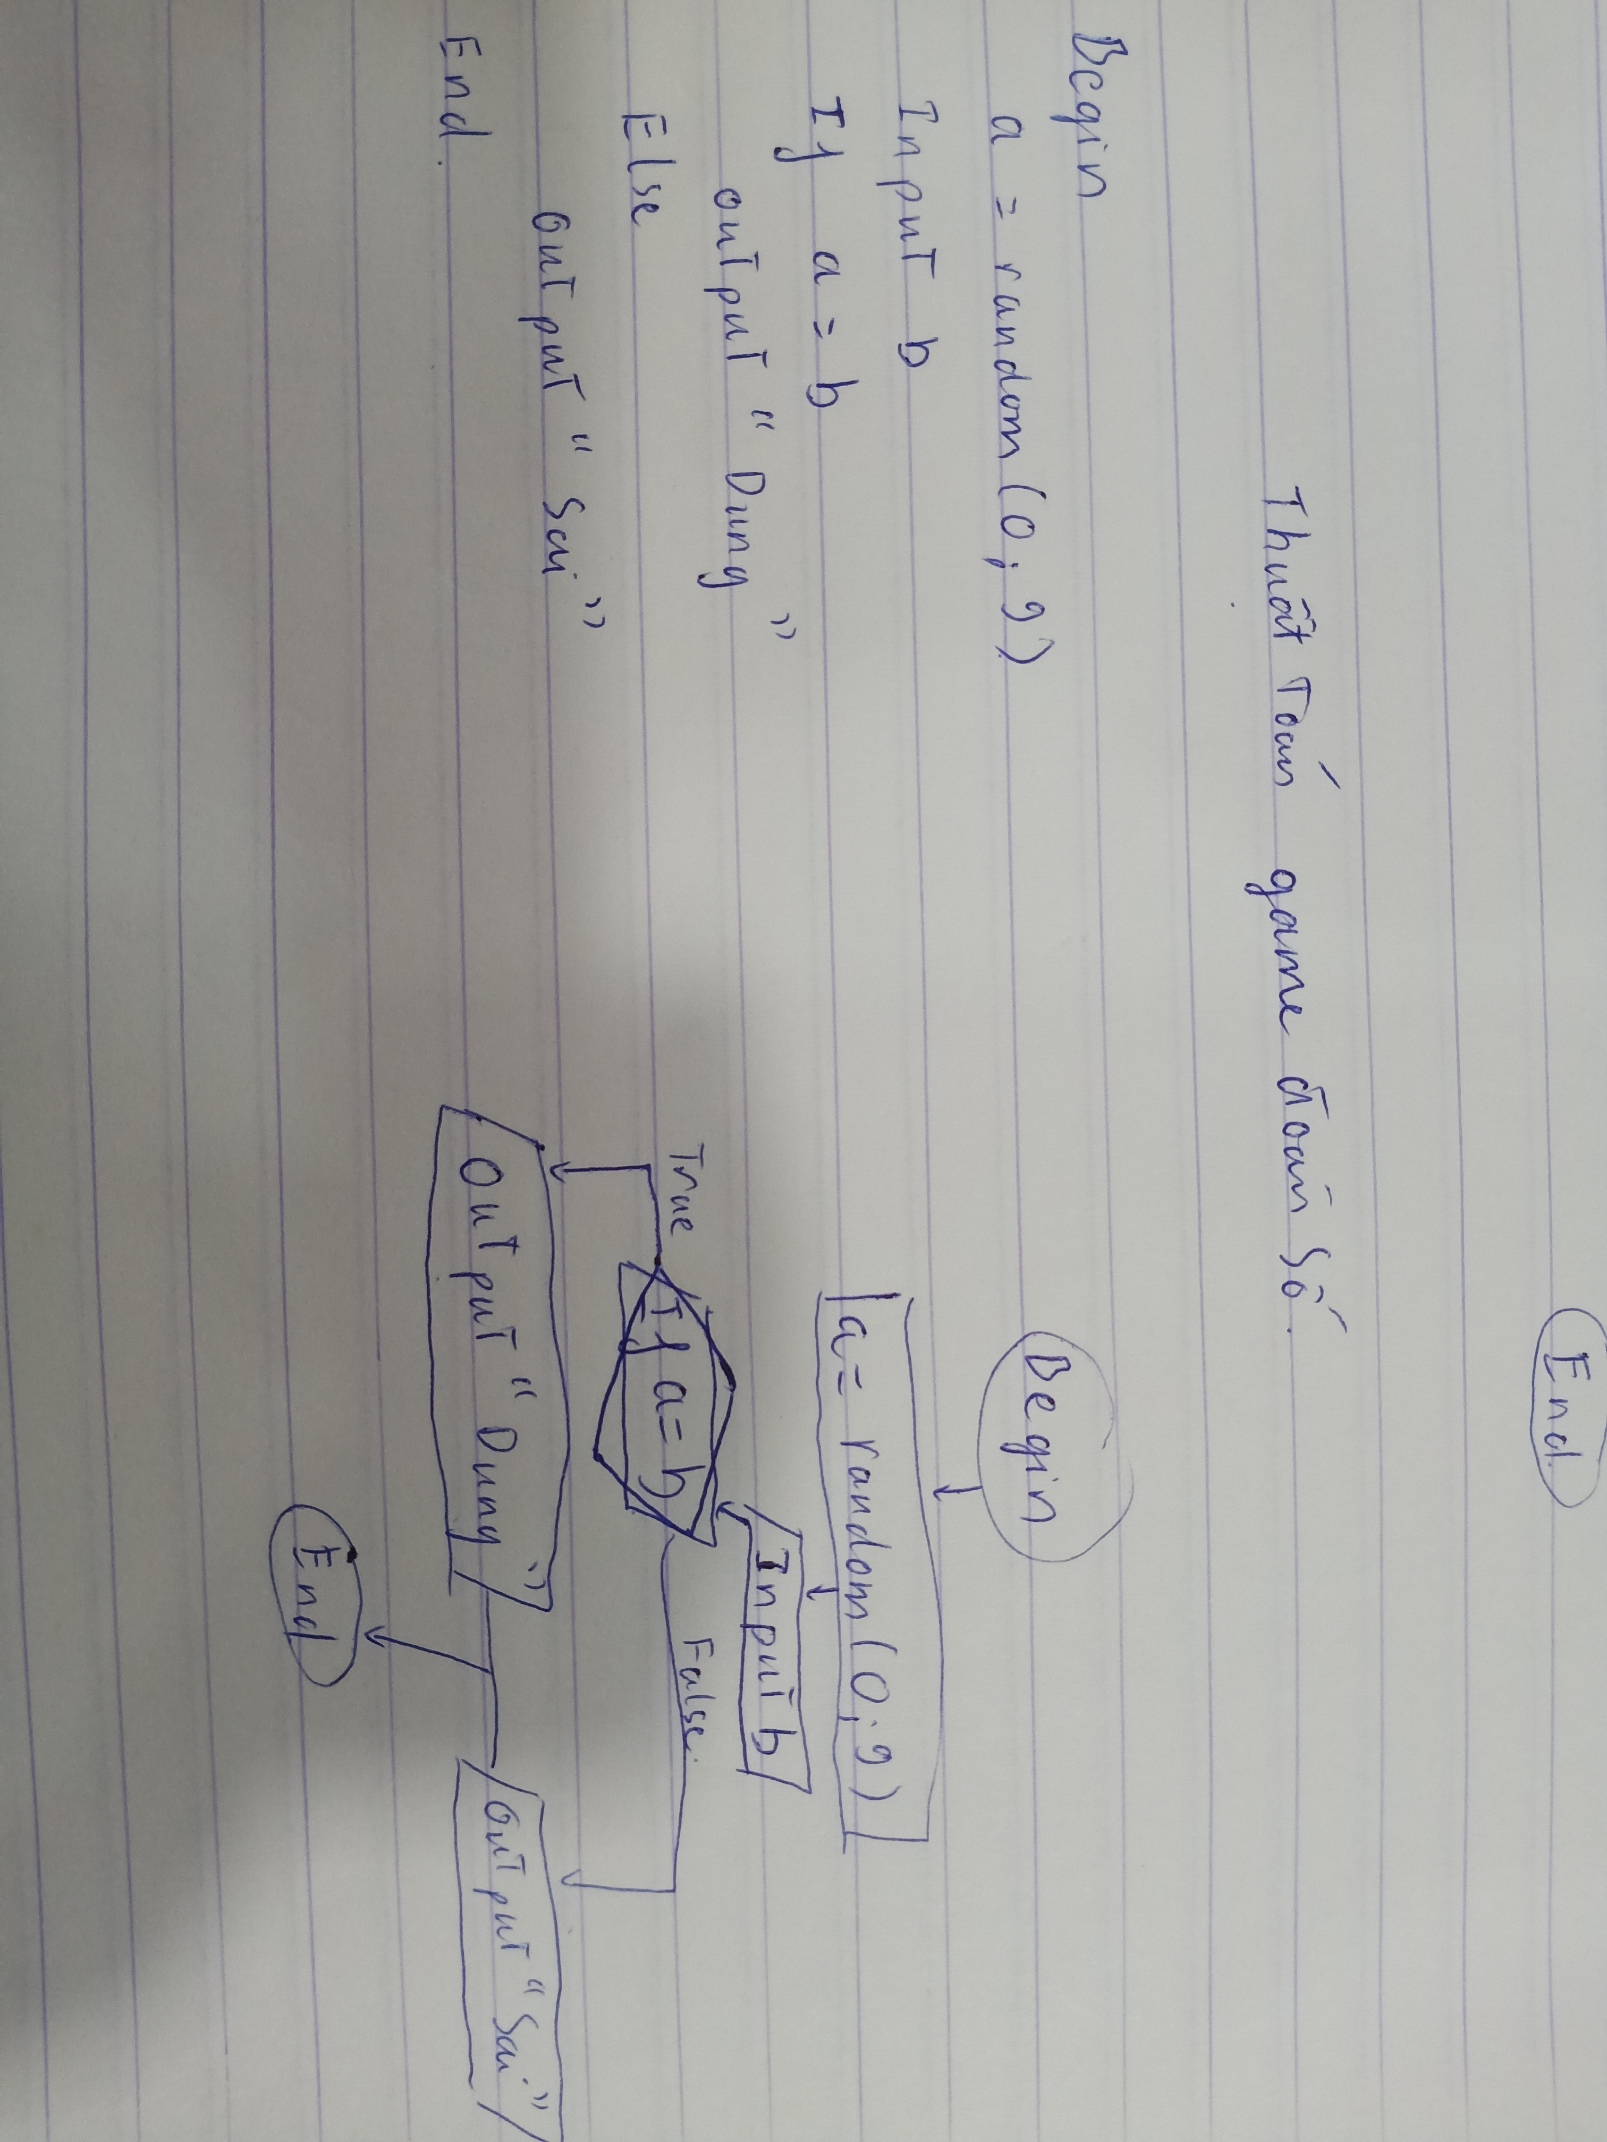 End.
Thuật Toán game đoán Số.
Begin
a = random (0; 9)
Input b
If a = b
output "Dung"
Else
output "Sai"
End.
Begin
a = random (0; 9)
Input b
True
If a = b
False.
output "Dung"
output "Sai"
End